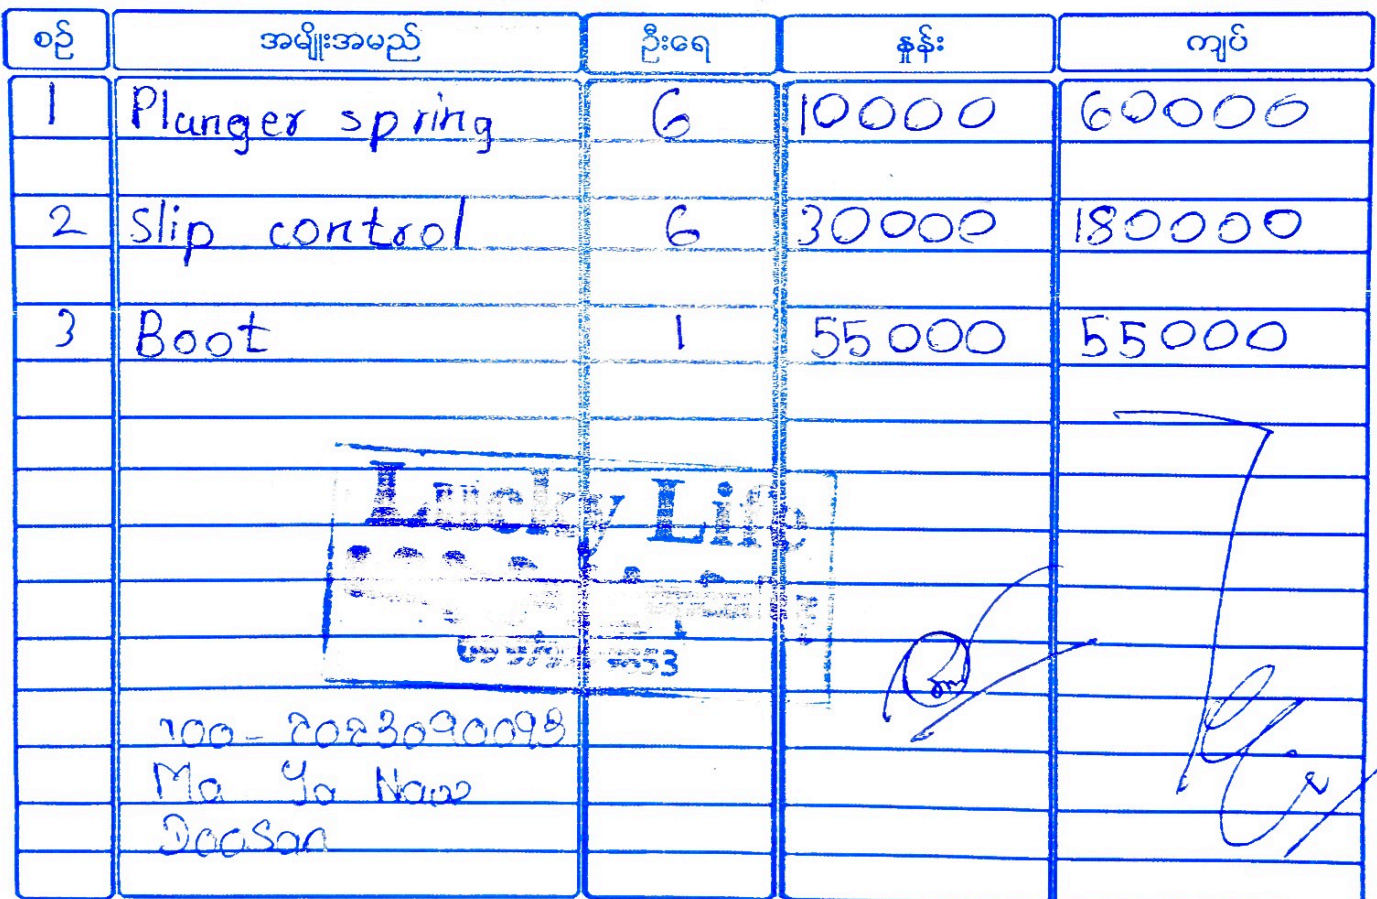 စဉ် အမျိုးအမည် ဦးရေ နှုန်း ကျပ်
1 Plunger spring 6 10000 60000
2 Slip control 6 30000 180000
3 Boot 1 55000 55000
Lucky Life
Ma Ya Naw
DooSan